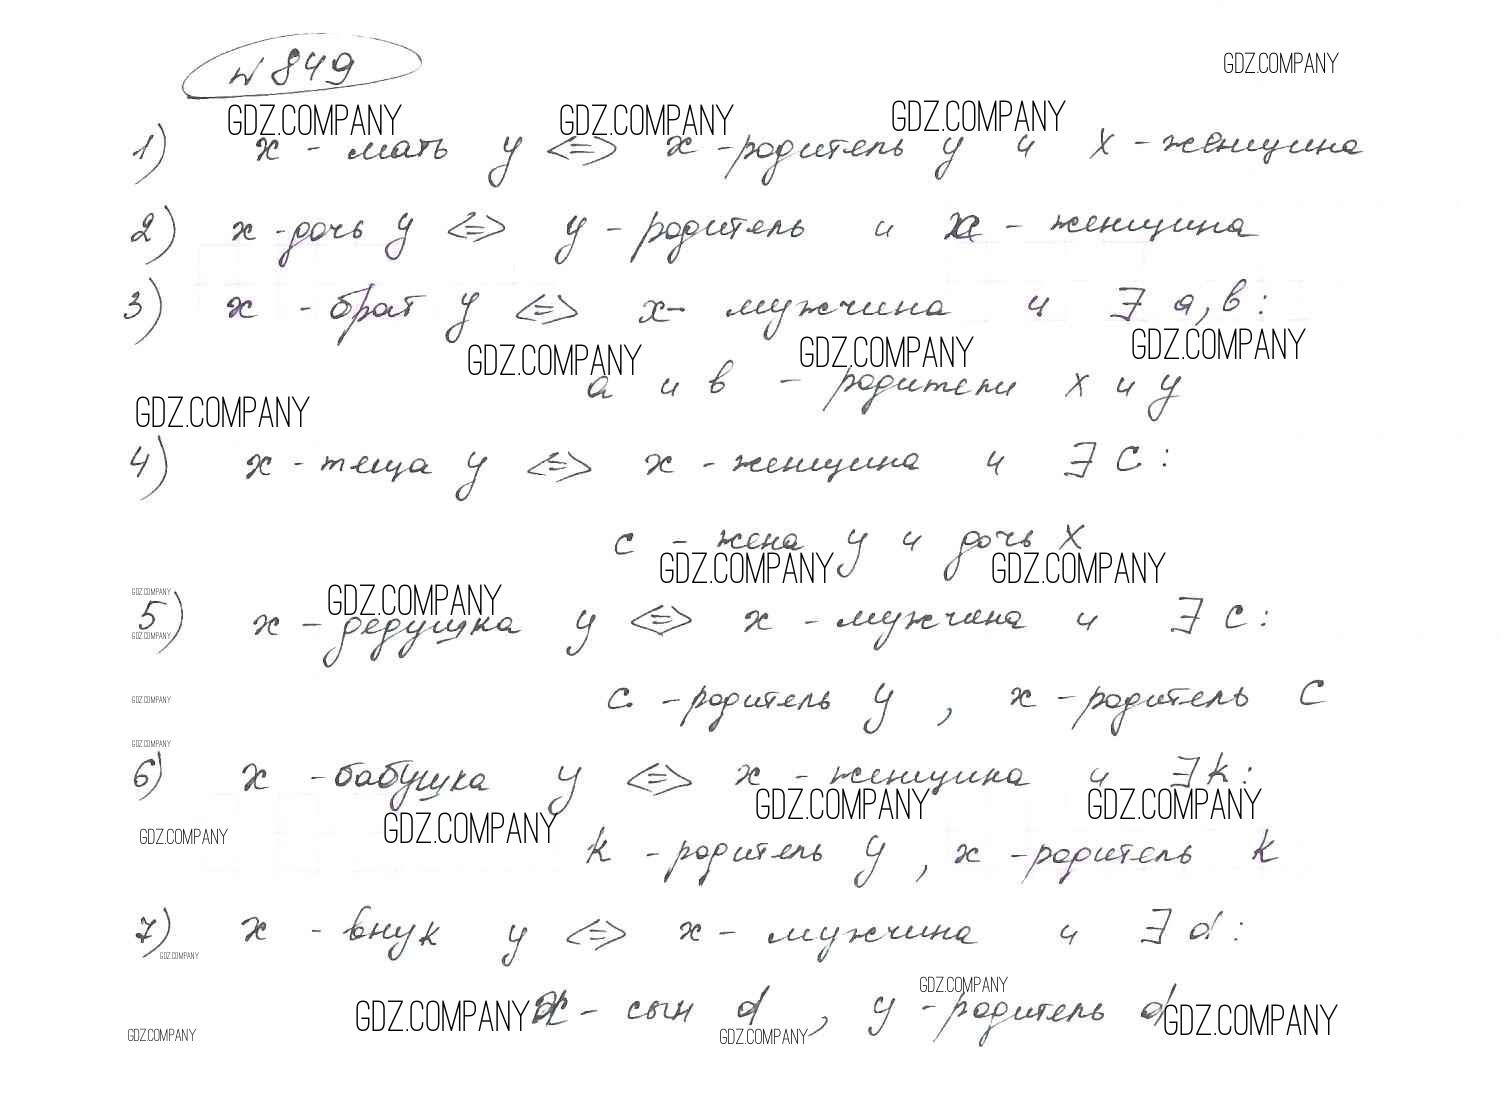 № 849
GDZ.COMPANY
GDZ.COMPANY GDZ.COMPANY GDZ.COMPANY
1) х - мать у <=> х - родитель у и х - женщина
2) х - дочь у <=> у - родитель и х - женщина
3) х - брат у <=> х - мужчина и ∃ а, в:
GDZ.COMPANY GDZ.COMPANY GDZ.COMPANY
а и в - родители х и у
GDZ.COMPANY
4) х - теща у <=> х - женщина и ∃ с:
с - жена у и дочь х
GDZ.COMPANY GDZ.COMPANY
GDZ.COMPANY GDZ.COMPANY
5) х - дедушка у <=> х - мужчина и ∃ с:
GDZ.COMPANY
с - родитель у, х - родитель с
GDZ.COMPANY
GDZ.COMPANY
6) х - бабушка у <=> х - женщина и ∃ k:
GDZ.COMPANY GDZ.COMPANY
GDZ.COMPANY GDZ.COMPANY
k - родитель у, х - родитель k
7) х - внук у <=> х - мужчина и ∃ d:
GDZ.COMPANY
GDZ.COMPANY
GDZ.COMPANY х - сын d, у - родитель d GDZ.COMPANY
GDZ.COMPANY GDZ.COMPANY